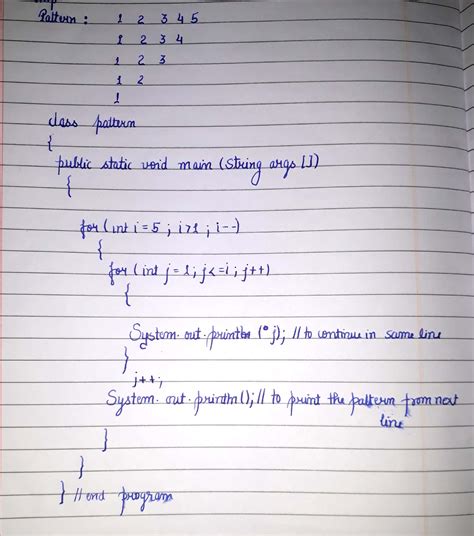 Pattern : 1 2 3 4 5
1 2 3 4
1 2 3
1 2
1
class pattern
{
public static void main (String args [])
{
for (int i = 5 ; i>1 ; i--)
{
for (int j = 1; j<=i ; j++)
{
System.out.println (" j); // to continue in same line
}
j++;
System.out.println(); // to print the pattern from next
line
}
}
} // end program